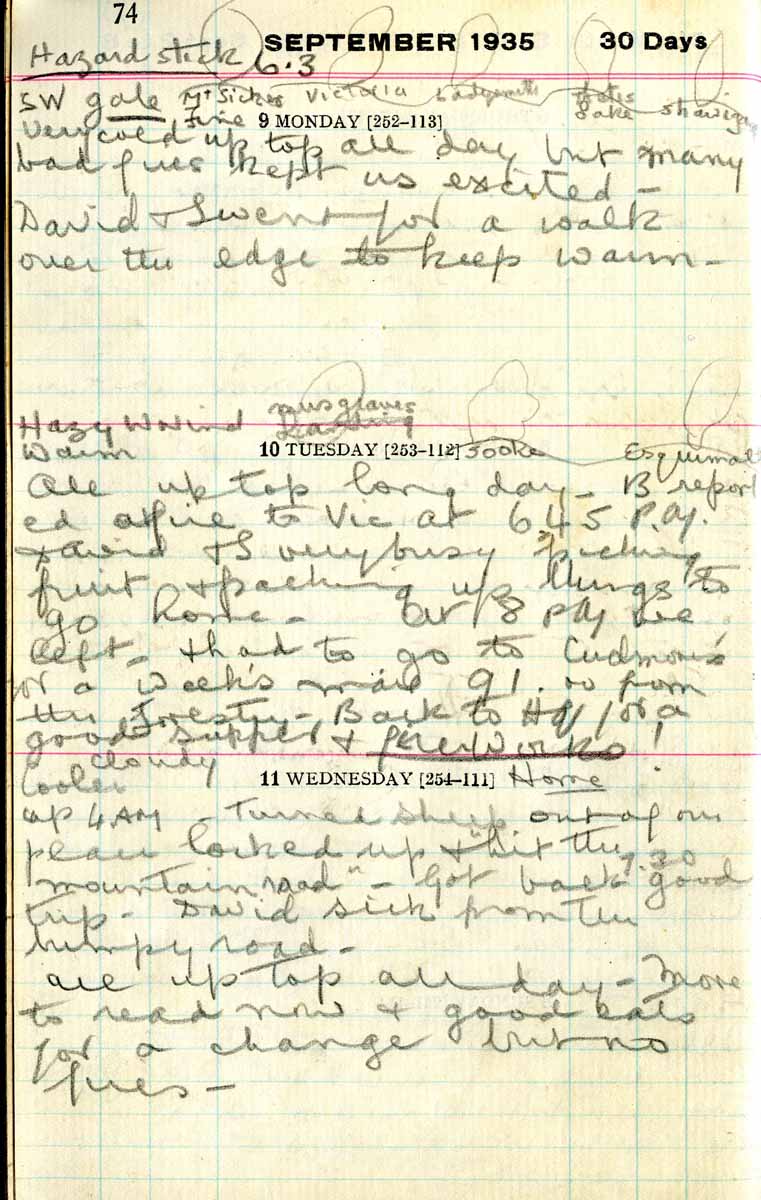 74
SEPTEMBER 1935 30 Days
Hazard stick 6.3
SW gale Mt Sicker Victoria
Fire 9 MONDAY [252-113] Lake Shawigan
Very cold up top all day but many
bad fires kept us excited -
David & I went for a walk
over the edge to keep warm -
Hazy W Wind musgraves
Landing
Warm 10 TUESDAY [253-112] Sooke Esquimalt
All up top long day - B report
ed a fire to Vic at 6.45 P.M.
David & I very busy picking
fruit & packing up things to
go home - At 8 PM we
left - & had to go to Cudmore's
for a week's mail 91.00 from
the Forestry - Back to HQ for a
good supper & fireworks!
Cloudy
Cooler 11 WEDNESDAY [254-111] Home
up 4 AM - Turned sheep out of our
place locked up & "hit the
mountain road" - Got back 7.30 good
trip - David sick from the
bumpy road -
all up top all day - More
to read now & good eats
for a change but no
fires -